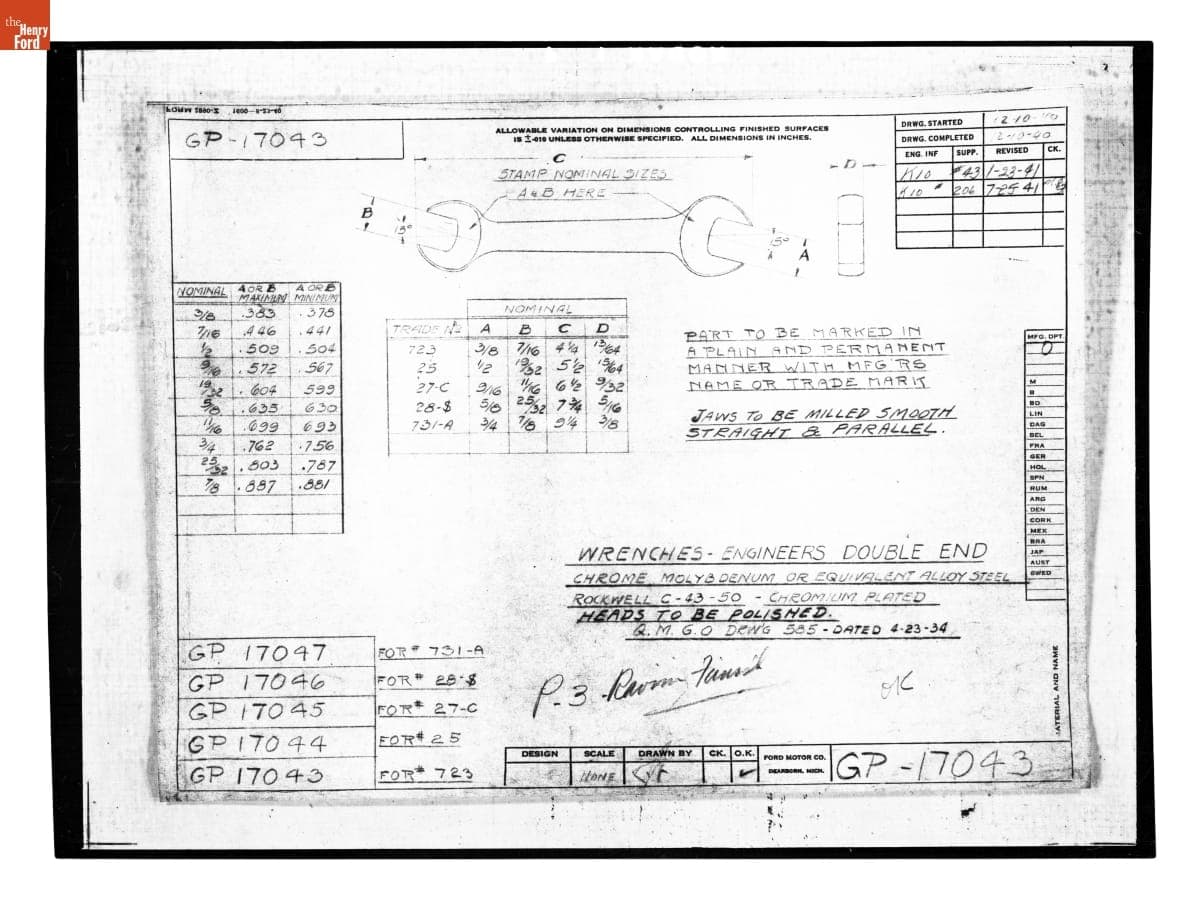 the
Henry
Ford
1600-8-23-40
GP-17043
ALLOWABLE VARIATION ON DIMENSIONS CONTROLLING FINISHED SURFACES
IS ±.010 UNLESS OTHERWISE SPECIFIED. ALL DIMENSIONS IN INCHES.
DRWG. STARTED 12-10-40
DRWG. COMPLETED 2-10-40
ENG. INF SUPP. REVISED CK.
K10 #43 1-23-41
K10 # 206 7-25-41
C
STAMP NOMINAL SIZES
A & B HERE
D
B
15°
15°
A
NOMINAL A OR B MAXIMUM A OR B MINIMUM
3/8 .383 .378
7/16 .446 .441
1/2 .509 .504
9/16 .572 .567
19/32 .604 .599
5/8 .635 .630
11/16 .699 .693
3/4 .762 .756
25/32 .803 .787
7/8 .887 .881
NOMINAL
TRADE No A B C D
723 3/8 7/16 4 1/4 13/64
25 1/2 19/32 5 1/2 15/64
27-C 9/16 11/16 6 1/2 9/32
28-S 5/8 25/32 7 3/4 5/16
731-A 3/4 7/8 9 1/4 3/8
PART TO BE MARKED IN
A PLAIN AND PERMANENT
MANNER WITH MFG'RS
NAME OR TRADE MARK
JAWS TO BE MILLED SMOOTH
STRAIGHT & PARALLEL.
MFG. DPT.
O
M
B
BO
LIN
DAG
BEL
FRA
GER
HOL
SPN
RUM
ARG
DEN
CORK
MEX
BRA
JAP
AUST
SWED
WRENCHES - ENGINEERS DOUBLE END
CHROME MOLYBDENUM OR EQUIVALENT ALLOY STEEL
ROCKWELL C-43-50 - CHROMIUM PLATED
HEADS TO BE POLISHED.
Q.M.G.O DRW'G 535 - DATED 4-23-34
GP 17047 FOR # 731-A
GP 17046 FOR # 28-S
GP 17045 FOR # 27-C
GP 17044 FOR # 25
GP 17043 FOR # 723
P-3
OK
MATERIAL AND NAME
DESIGN SCALE DRAWN BY CK. O.K.
NONE
FORD MOTOR CO.
DEARBORN, MICH.
GP-17043